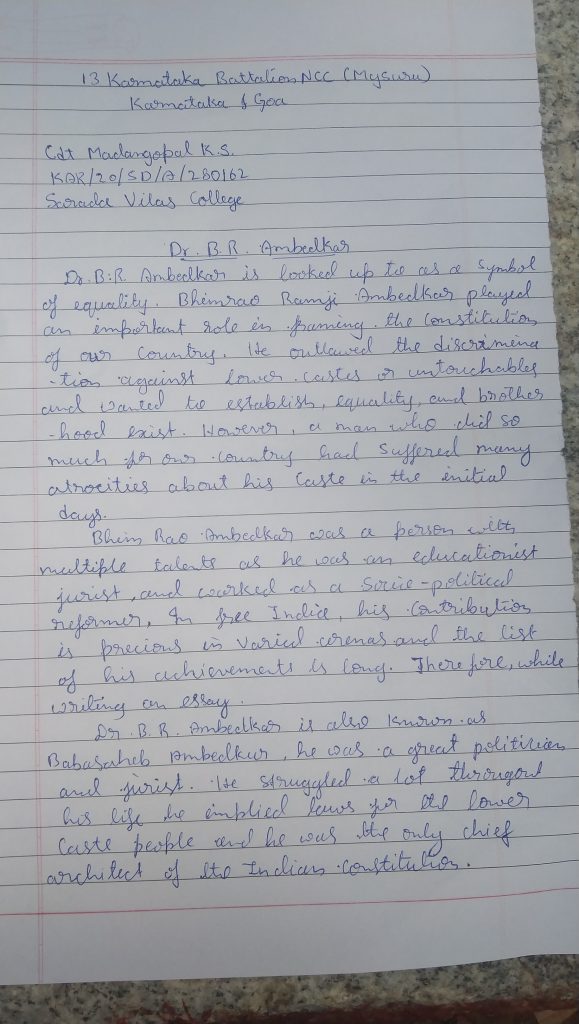 13 Karnataka Battalion NCC (Mysuru)
Karnataka & Goa
Cdt Madangopal K.S.
KAR/20/SD/A/280162
Sarada Vilas College
Dr. B.R. Ambedkar
Dr. B.R. Ambedkar is looked up to as a symbol
of equality. Bhimrao Ramji Ambedkar played
an important role in framing the constitution
of our Country. He outlawed the discrimena
-tion against lower castes or untouchables
and wanted to establish, equality, and brother
-hood exist. However, a man who did so
much for our country had suffered many
atrocities about his Caste in the initial
days.
Bhim Rao Ambedkar was a person with
multiple talents as he was an educationist
jurist, and worked as a Socio-political
reformer, In free India, his contribution
is precious in varied arenas and the list
of his achievements is long. Therefore, while
writing an essay.
Dr. B. R. Ambedkar is also known as
Babasaheb Ambedkar, he was a great politician
and jurist. He struggled a lot througout
his life he implied laws for the lower
Caste people and he was the only chief
architect of the Indian constitution.